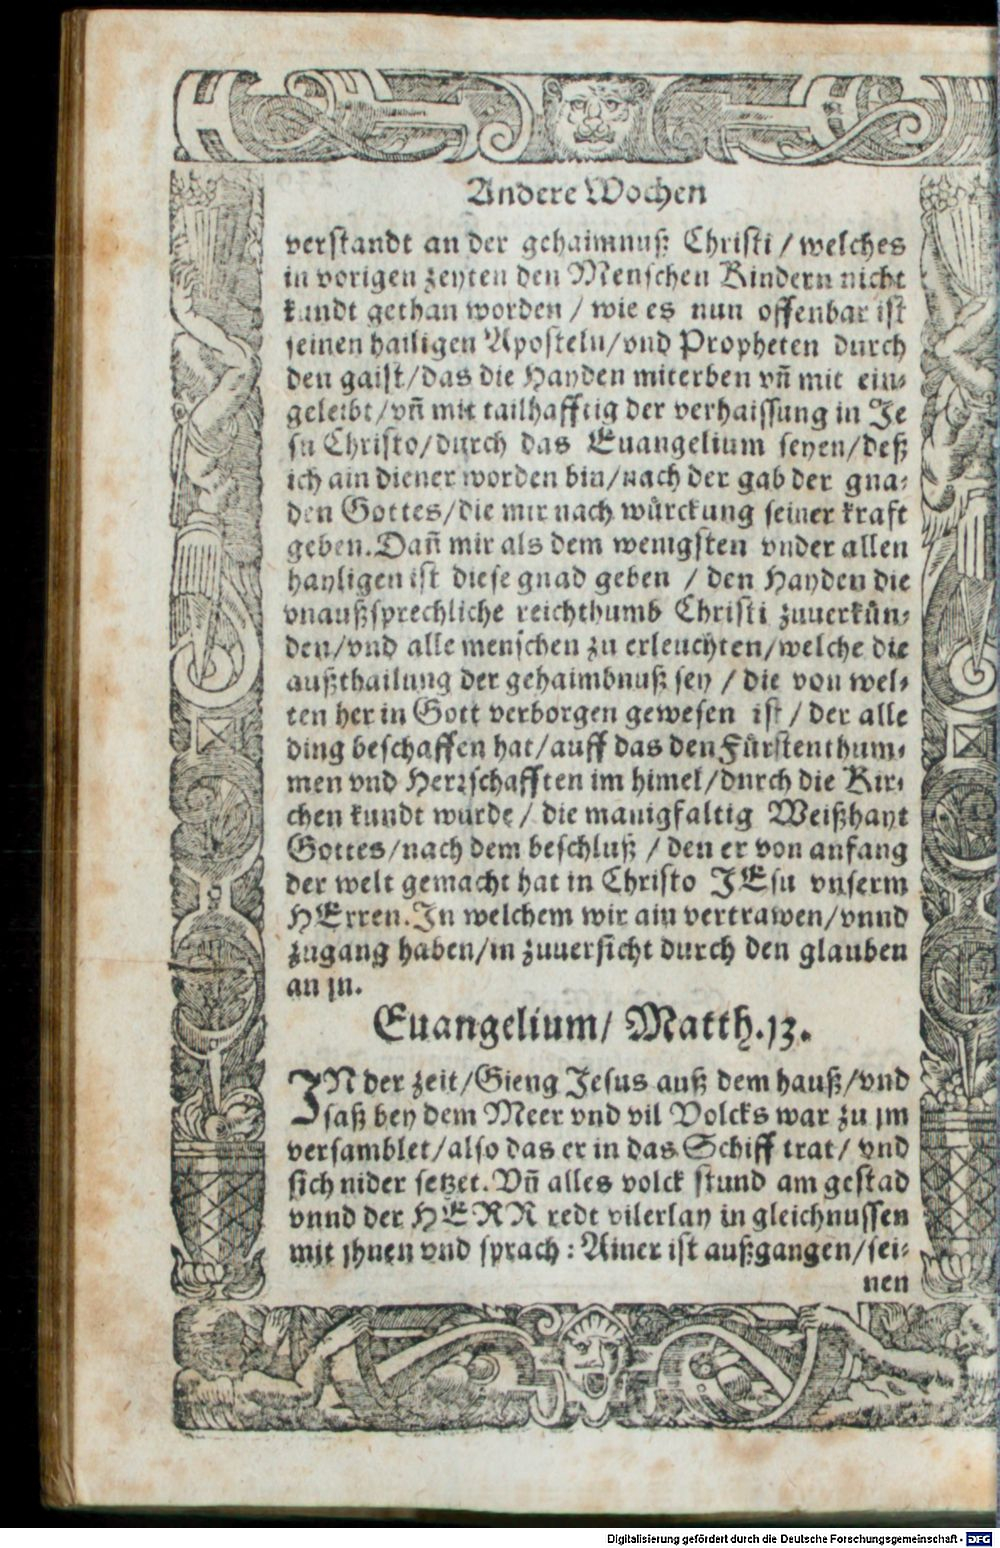 Andere Wochen
verstandt an der gehaimnuß Christi / welches
in vorigen zeyten den Menschen Kindern nicht
kundt gethan worden / wie es nun offenbar ist
seinen hailigen Aposteln/vnd Propheten durch
den gaist/das die Hayden miterben vñ mit ein-
geleibt/vñ mit tailhafftig der verhaissung in Je
su Christo/durch das Euangelium seyen/deß
ich ain diener worden bin/nach der gab der gna-
den Gottes/die mir nach würckung seiner kraft
geben. Dañ mir als dem wenigsten vnder allen
hayligen ist diese gnad geben / den Hayden die
vnaußsprechliche reichthumb Christi zuuerkün-
den/vnd alle menschen zu erleuchten/welche die
außthailung der gehaimbnuß sey / die von wel-
ten her in Gott verborgen gewesen ist / der alle
ding beschaffen hat/auff das den Fürstenthum-
men vnd Herrschafften im himel/durch die Kir-
chen kundt wurde / die manigfaltig Weißhayt
Gottes/nach dem beschluß / den er von anfang
der welt gemacht hat in Christo JEsu vnserm
HErren. In welchem wir ain vertrawen/vnnd
zugang haben/in zuuersicht durch den glauben
an jn.
Euangelium/ Matth. 13.
IN der zeit/Gieng Jesus auß dem hauß/vnd
saß bey dem Meer vnd vil Volcks war zu jm
versamblet/also das er in das Schiff trat/ vnd
sich nider setzet. Vñ alles volck stund am gestad
vnnd der HERR redt vilerlay in gleichnussen
mit jhnen vnd sprach : Ainer ist außgangen/sei-
nen
Digitalisierung gefördert durch die Deutsche Forschungsgemeinschaft - DFG